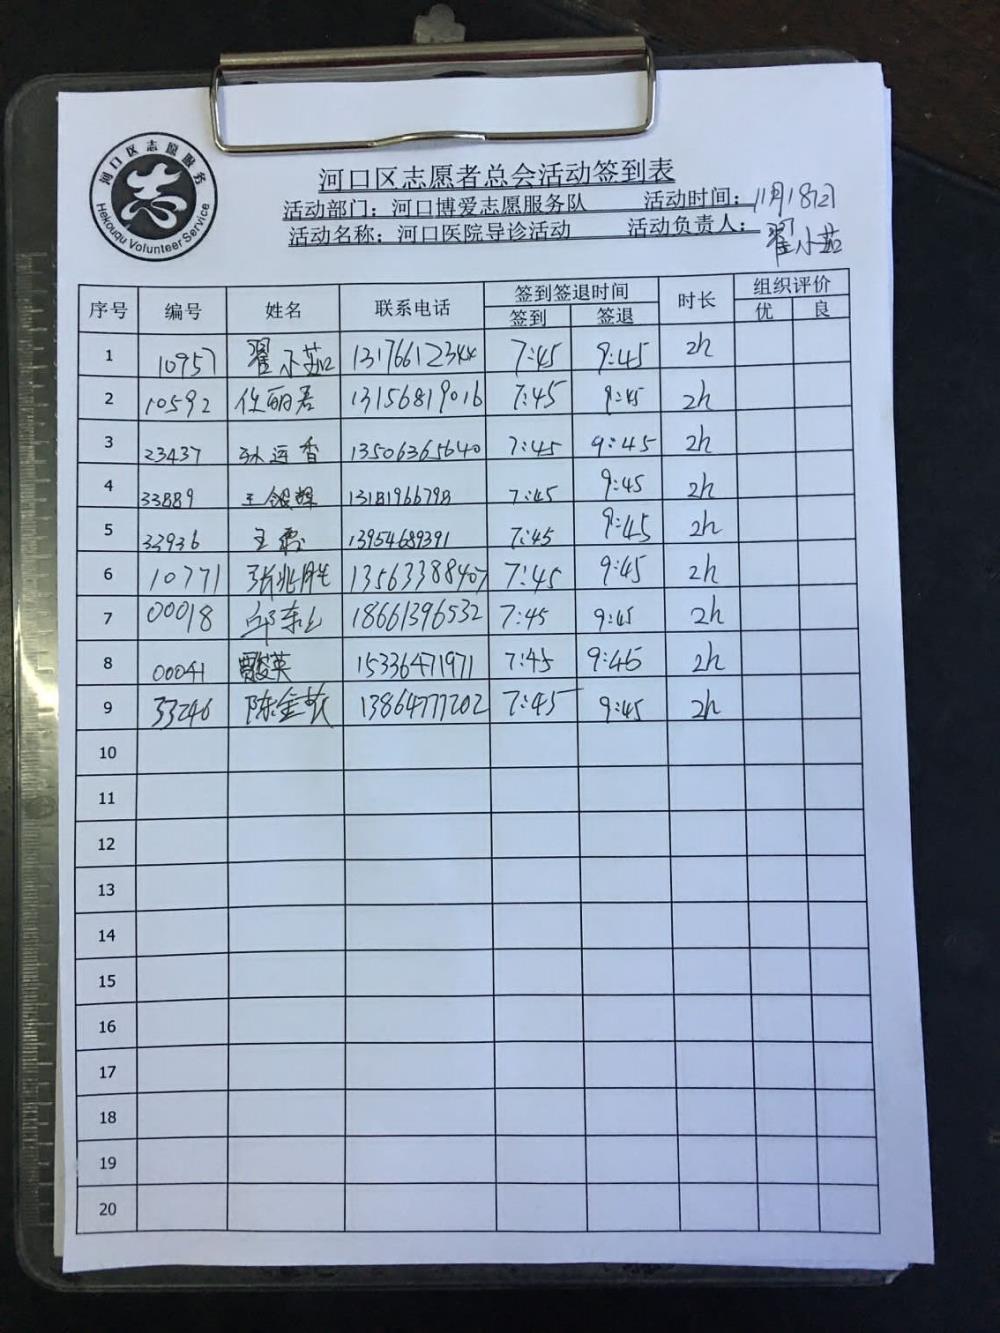 河口区志愿服务
Hekouqu Volunteer Service
河口区志愿者总会活动签到表
活动部门：河口博爱志愿服务队 活动时间：11月18日
活动名称：河口医院导诊活动 活动负责人：翟小茹
序号 编号 姓名 联系电话 签到签退时间 时长 组织评价
签到 签退 优 良
1 10957 翟小茹 13176612344 7:45 9:45 2h
2 10592 任丽君 13156819016 7:45 9:45 2h
3 23437 孙运香 13506365640 7:45 9:45 2h
4 33889 王银辉 13181966798 7:45 9:45 2h
5 33936 王霞 13954689391 7:45 9:45 2h
6 10771 张兆胜 13563388407 7:45 9:45 2h
7 00018 邱东 18661396532 7:45 9:45 2h
8 00041 英 15336471971 7:45 9:45 2h
9 33246 陈金 13864777202 7:45 9:45 2h
10
11
12
13
14
15
16
17
18
19
20